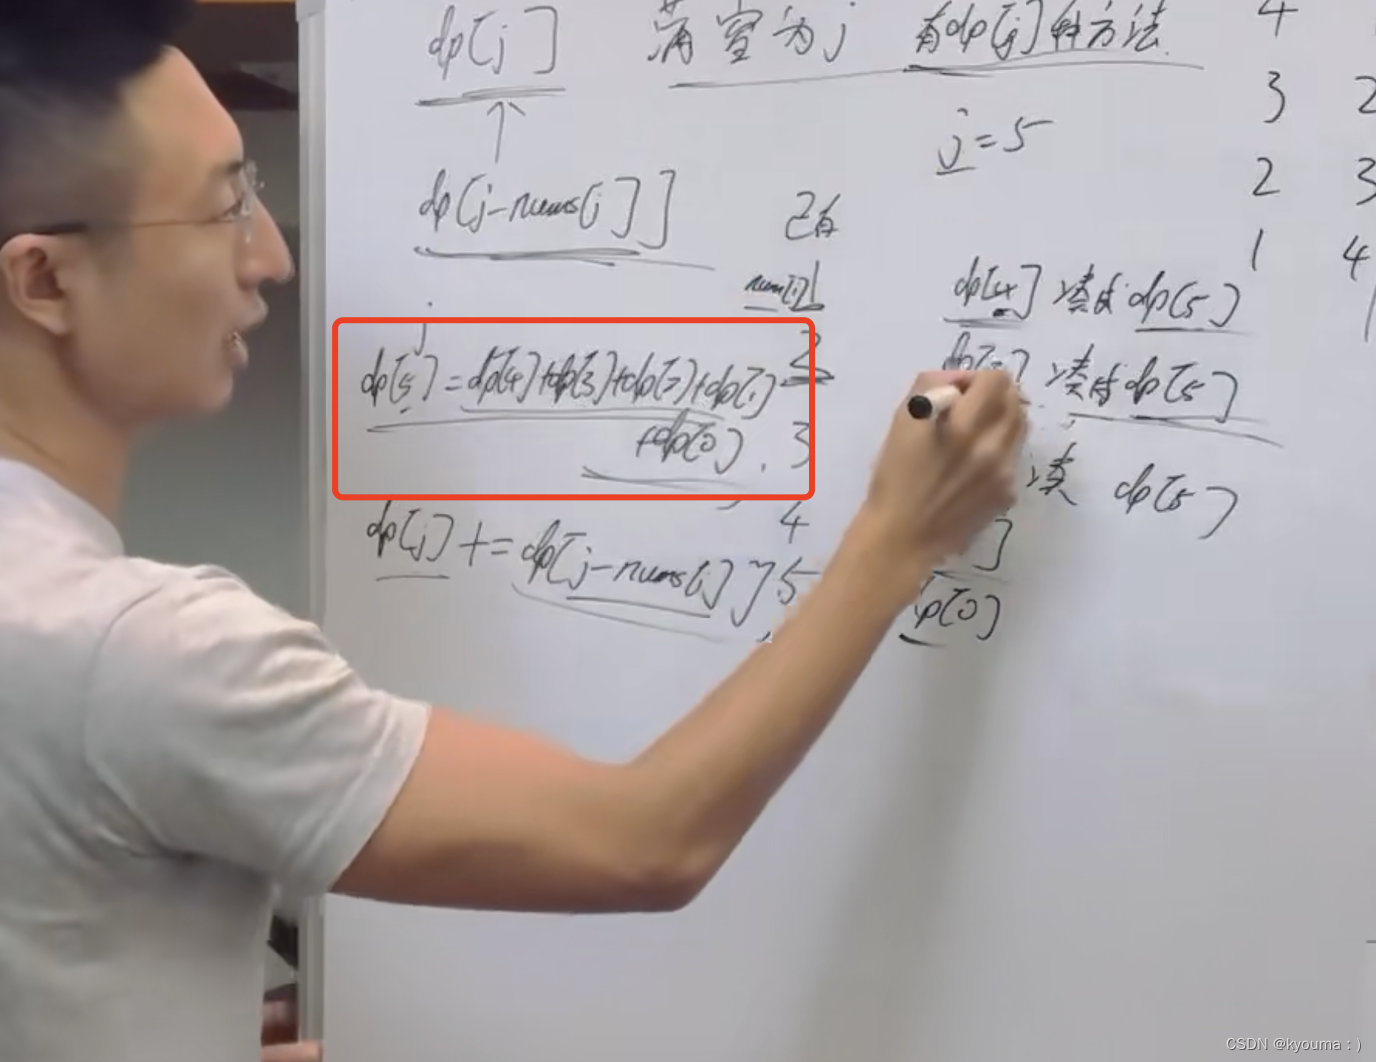 dp[j] 满容为j 有dp[j]种方法
4
3 2
j=5
2 3
dp[j-nums[j]]
已有
1 4
num[i] 1
dp[4] 凑成 dp[5)
j
2
dp[5]=dp[4]+dp[3]+dp[2]+dp[1]
凑成 dp[5]
+dp[0]
3
凑 dp[5]
4
dp[j] += dp[j-nums[i]]
5
dp[0]
CSDN @kyouma：)